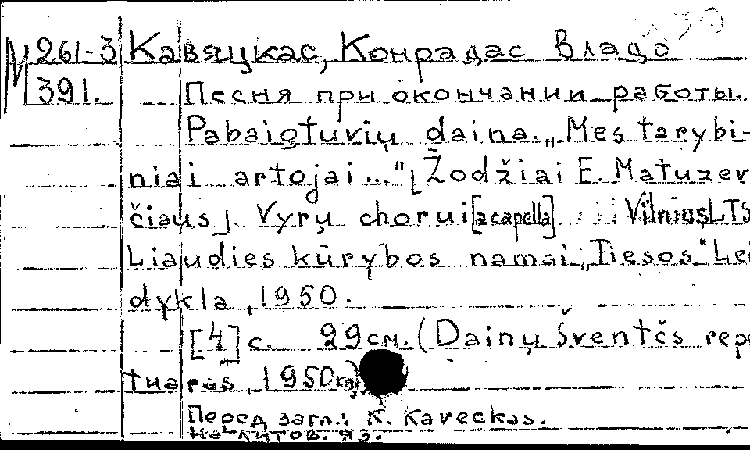 М 261-3 Кавяцкас, Конрадас Владо
391. Песня при окончании работы.
Pabaigtuvių daina. „Mes tarybi-
niai artojai..." [Žodžiai E. Matuzev
čiaus]. Vyrų chorui [a capella]. Vilnius, LTS
Liaudies kūrybos namai, „Tiesos" Lei
dykla, 1950.
[4] с. 29 см. (Dainų šventės repe
tuaras, 1950
Перед загл.: K. Kaveckas.
На литов. яз.